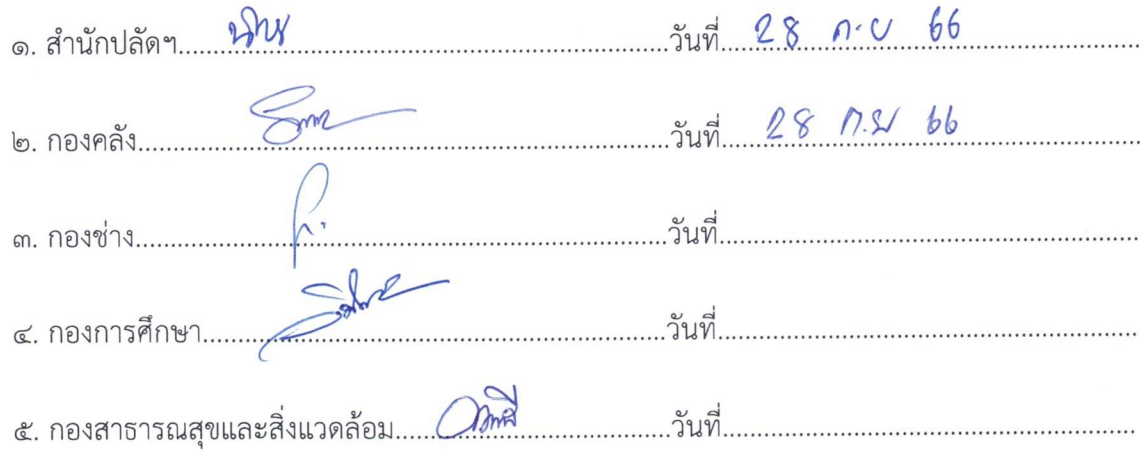 ๑. สำนักปลัดฯ..............................วันที่...28 ก.ย 66...
๒. กองคลัง..............................วันที่...28 ก.ย 66...
๓. กองช่าง..............................วันที่..............................
๔. กองการศึกษา..............................วันที่..............................
๕. กองสาธารณสุขและสิ่งแวดล้อม..............................วันที่..............................